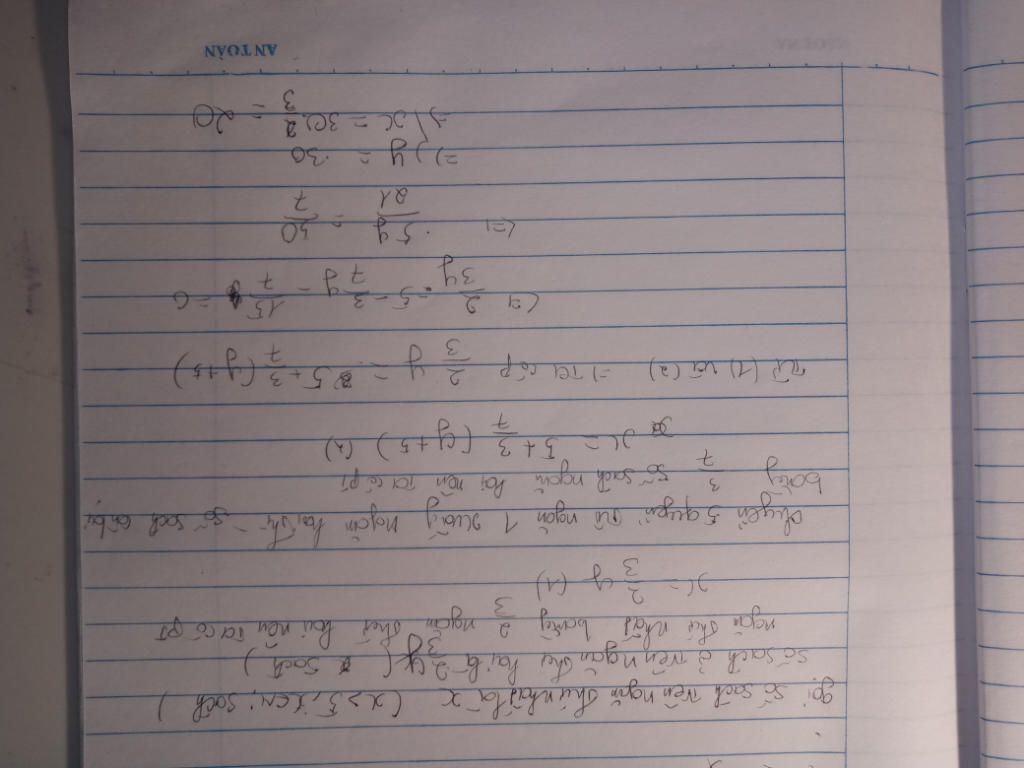 gọi số sách trên ngăn thứ nhất là x (x > 5, x ∈ N, sách)
số sách ở trên ngăn thứ hai là 2/3 y ( sách )
ngăn thứ nhất bằng 2/3 ngăn thứ hai nên ta có pt
x = 2/3 y (1)
chuyển 5 quyển từ ngăn 1 xuống ngăn hai thì số sách
bằng 3/7 số sách ngăn hai nên ta có pt
x = 5 + 3/7 (y + 5) (2)
từ (1) và (2) => ta có p 2/3 y = 5 + 3/7 (y + 5)
<=> 2/3 y - 5 - 3/7 y - 15/7 = 0
<=> 5y/21 = 50/7
=> y = 30
=> x = 30. 2/3 = 20
AN TOÀN